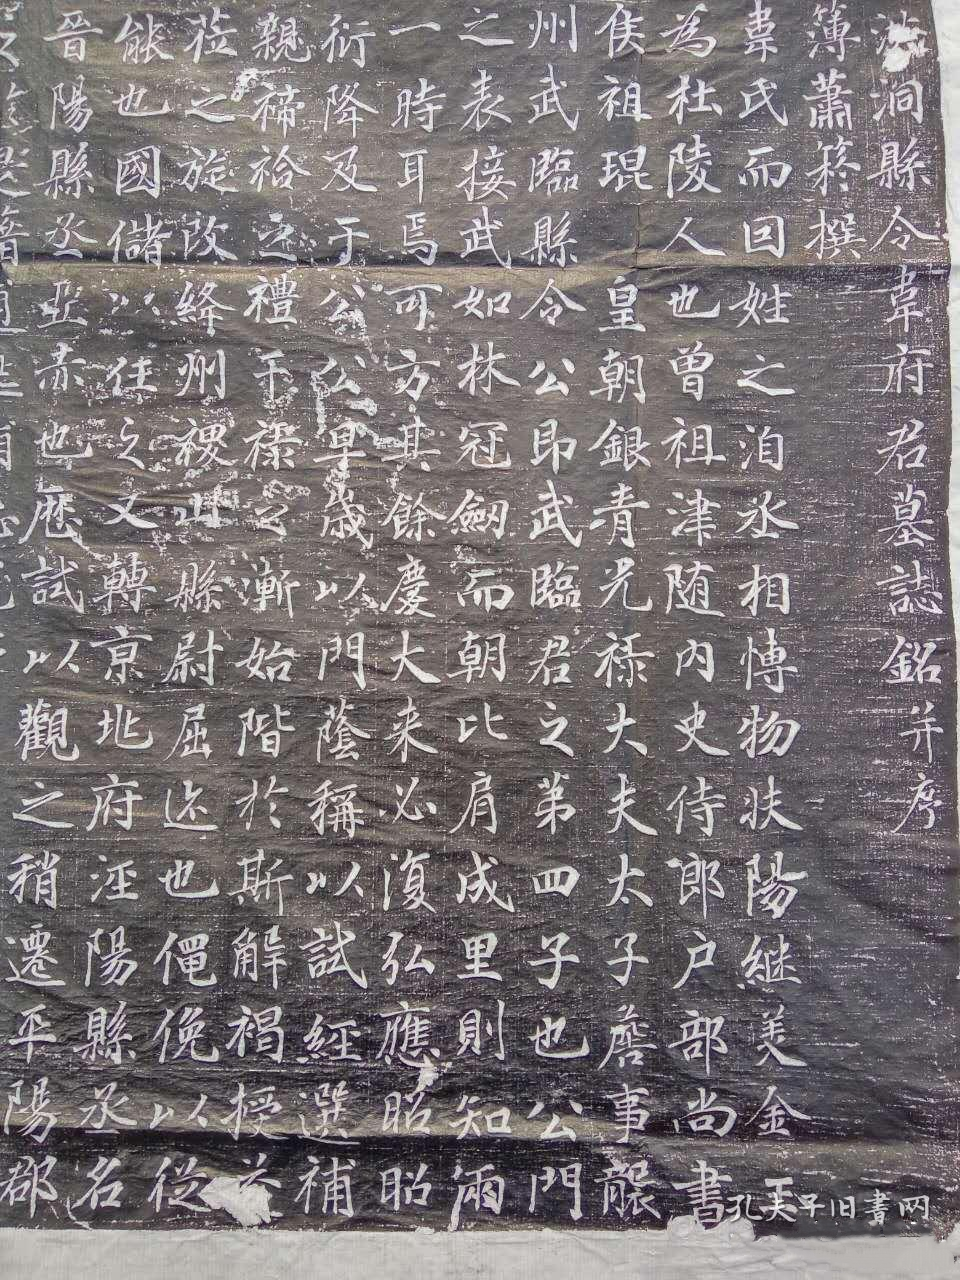 洪洞縣令韋府君墓誌銘并序
簿蕭篸撰
韋氏而回姓之洎丞相博物扶陽継美金玉
為杜陵人也曽祖津随内史侍郎户部尚書
侯祖琨皇朝銀青光禄大夫太子詹事襲
州武臨縣令公即武臨君之第四子也公門
之表接武如林冠劒而朝比肩成里則知兩
一時耳焉可方其餘慶大来必復弘應昭昭
衍降及于公公早歲以門蔭稱以試經選補
親禘祫之禮干禄之漸始階於斯解褐授
莅之旋改絳州稷山縣尉屈迹也僶俛以從
能也國儲以任之又轉京兆府涇陽縣丞名
晉陽縣丞亞赤也歷試以觀之稍遷平陽郡
孔夫子旧書网